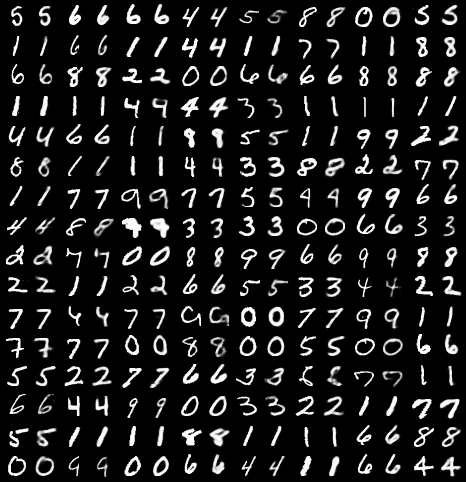 5 5 6 6 6 6 4 4 5 5 8 8 0 0 5 5
1 1 6 6 1 1 4 4 1 1 7 7 1 1 8 8
6 6 8 8 2 2 0 0 6 6 6 6 8 8 8 8
1 1 1 1 4 4 4 4 3 3 1 1 1 1 1 1
4 4 6 6 1 1 8 8 5 5 1 1 9 9 2 2
8 8 1 1 1 1 4 4 3 3 8 8 2 2 7 7
1 1 7 7 9 9 7 7 5 5 4 4 9 9 6 6
4 4 8 8 3 3 3 3 0 0 6 6 3 3
2 2 7 7 0 0 8 8 9 9 6 6 9 9 8 8
2 2 1 1 2 2 6 6 5 5 3 3 4 4 2 2
7 7 4 4 7 7 9 9 0 0 7 7 9 9 1 1
7 7 7 7 0 0 8 8 0 0 5 5 0 0 6 6
5 5 2 2 7 7 6 6 3 3 8 8 7 7 1 1
6 6 4 4 9 9 0 0 3 3 2 2 1 1 7 7
5 5 1 1 1 1 8 8 1 1 1 1 6 6 8 8
0 0 9 9 0 0 6 6 4 4 1 1 6 6 4 4